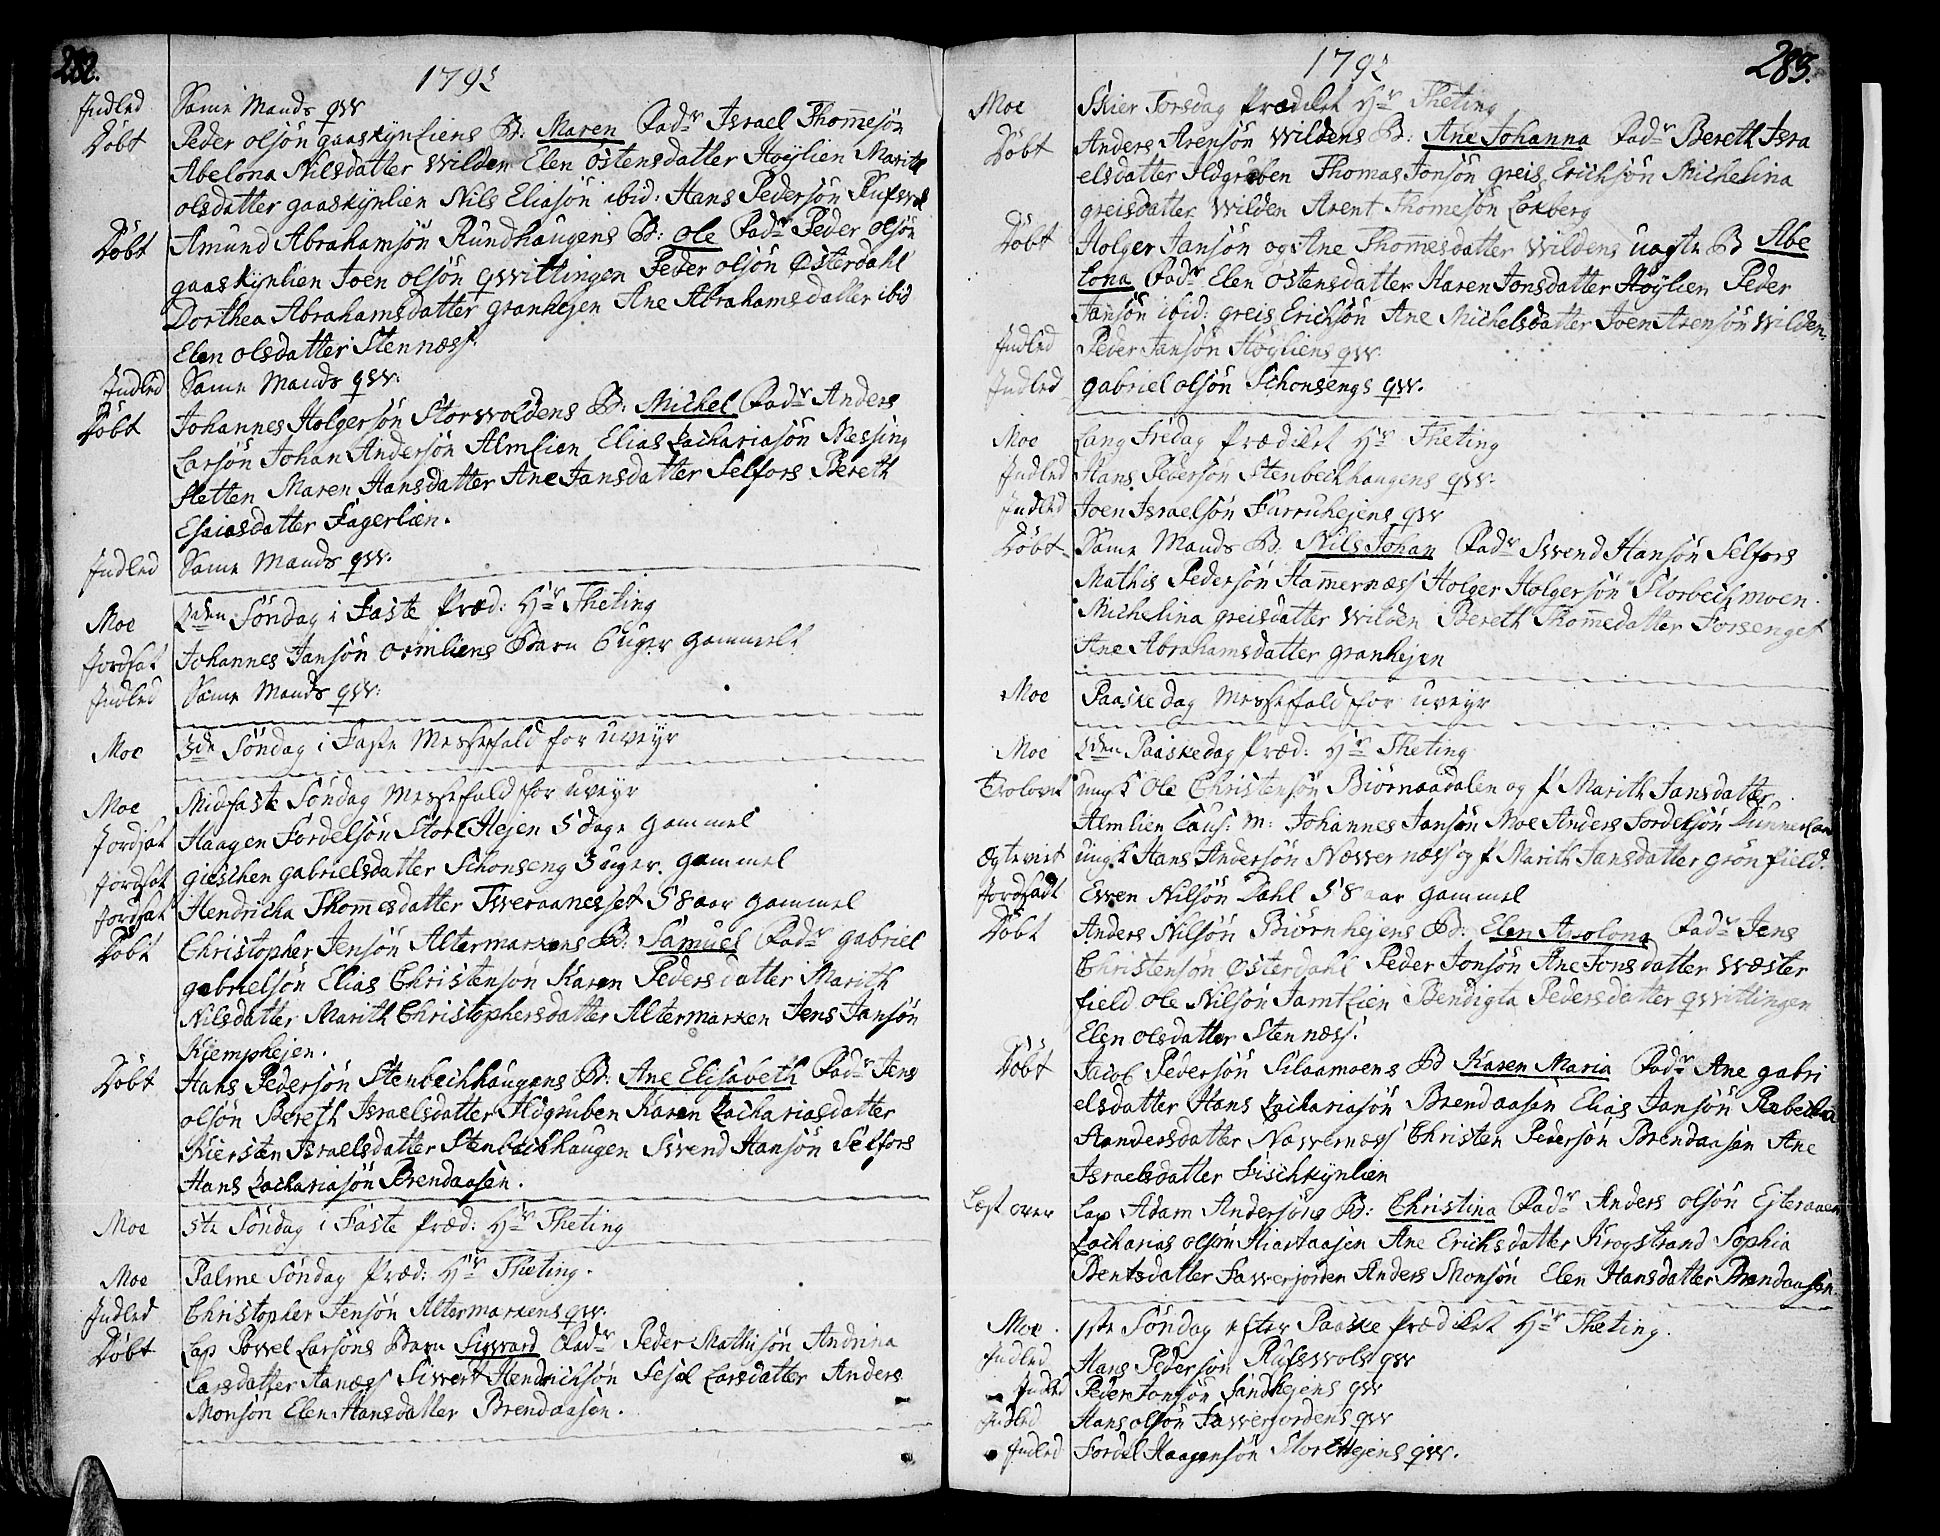 282.
1795
Indled Same Mands qvv
Döbt Peder olsön gaaskynliens B: Maren Fadr Israel Thommesön
Abelona Nilsdatter Wilden Elen Östensdatter Höÿlien Marith
olsdatter gaaskynlien Nils Eliasön ibid: Hans Pedersön Rufsvol
Döbt Amund Abrahamsön Rundhaugens B: ole Fadr Peder olsön
gaaskÿnlien Joen olsön qvvittingen Peder olsön Österdahl
Dorthea Abrahamsdatter granhejen Ane Abrahamsdatter ibid
Elen olsdatter Stennæss.
Indled Same Mands qvv:
Döbt Johannes Holgersön Storvvoldens B: Michel Fadr Anders
Larsön Johan Andersön Almlien Elias Zachariasön Messing
sletten Maren Hansdatter Ane Jansdatter Selfors Bereth
Esaiasdatter Fagerlien.
Indled Same Mands qvv:
Moe 2den Söndag i Faste Præd: Hr Theting
Jordsat Johannes Jansön Ormliens Barn 6 uger gammelt
Indled Same Mands qvv:
Moe 3de Söndag i Faste Messefald for uveÿr
Moe Midfaste Söndag Messefald for uveÿr
Jordsat Haagen Fordelsön Store Hejen 5 dage gammel
Jordsat gieschen gabrielsdatter Schonseng 3 uger gammel
Jordsat Hendricha Thommesdatter Tvveraanesset 58 aar gammel
Döbt Christopher Jensön Altermarkens B: Samuel Fadr gabriel
gabrielsön Elias Christensön Karen Pedersdatter Marith
Nilsdatter Marith Christophersdatter Altermarken Jens Jansön
Kiemphejen.
Döbt Hans Pedersön Stenbechhaugens B: Ane Elisabeth Fadr Jens
olsön Bereth Israelsdatter Ildgruben Karen Zachariasdatter
Kiersten Israelsdatter Stenbechhaugen Svvend Hansön Selfors
Hans Zachariasön Brendaasen.
Moe 5te Söndag i Faste Præd: Hr Theting
Moe Palme Söndag Præd: Hr Theting.
Indled Christopher Jensön Altermarkens qvv.
Döbt Lap Povvel Larsöns Barn Sivvard Fadr Peder Mathisön Andrina
Larsdatter Aanæss Sivvert Hendrichsön Sesel Larsdatter Anders
Monsön Elen Hansdatter Brendaasen.
283.
1795
Moe Skier Torsdag Prædiket Hr Theting
Döbt Anders Arensön Wildens B: Ane Johanna Fadr Bereth Isra
elsdatter Ildgruben Thomas Jonsön greis Erichsön Michelina
greisdatter Wilden Arent Thomesön Laxberg
Döbt Holger Jansön og Ane Thommesdatter Wildens uægte B Abe
lona Fadr Elen Östensdatter Karen Jonsdatter Höÿlien Peder
Jansön ibid: greis Erichsön Ane Michelsdatter Joen Arensön Wilden.
Indled Peder Jansön Höÿliens qvv.
Indled gabriel olsön Schonsengs qvv.
Moe Lang Fredag Prædiket Hr Theting
Indled Hans Pedersön Stenbechhaugens qvv.
Indled Joen Israelsön Furruhejens qvv
Döbt Same Mands B. Nils Johan Fadr Svvend Hansön Selfors
Mathis Pedersön Hamernæss Holger Holgersön Storbechmoen.
Michelina greisdatter Wilden Bereth Thommedatter Forsenget
Ane Abrahamsdatter granhejen
Moe Paaske dag Messefald for uveÿr
Moe 2den Paaskedag Præd: Hr Theting
Trolovet ung K Ole Christensön Biörnaadalen og P Marith Jansdatter
Almlien Caus: m: Johannes Jansön Moe Anders Fordelsön
Ægtevict ung K Hans Andersön Navvernæss og P Marith Jansdatter grönfield.
Jordsadt Evven Nilsön Dahl 58 aar gammel
Döbt Anders Nilsön Biörnhejens B: Elen Apolona Fadr Jens
Christensön Österdahl Peder Jonsön Ane Jonsdatter Wæster
field Ole Nilsön Jamtlien Bendigta Pedersdatter qvvittingen
Elen olsdatter Stennæss.
Döbt Jacob Pedersön Silaamoens B Karen Maria Fadr Ane gabri
elsdatter Hans Zachariasön Brendaasen Elias Jansön Rebecha
Andersdatter Navvernæss Christen Pedersön Brendaasen Ane
Israelsdatter Fischkÿnlien
Læst over Lap Adam Andersöns B: Christina Fadr Anders olsön Ejteraaen
Zacharias olsön Ane Erichsdatter Krogstrand Sophia
Bentsdatter Favverjorden Anders Monsön Elen Hansdatter Brendaasen.
Moe. 1ste Söndag efter Paaske Prædiket Hr Theting.
Indled Hans Pedersön Rufsvvols qvv
Indled Peder Jonsön Sandhejens qvv
Indled Hans olsön Favverjordens qvv
Indled Fordel Haagensön Storehejens qvv.